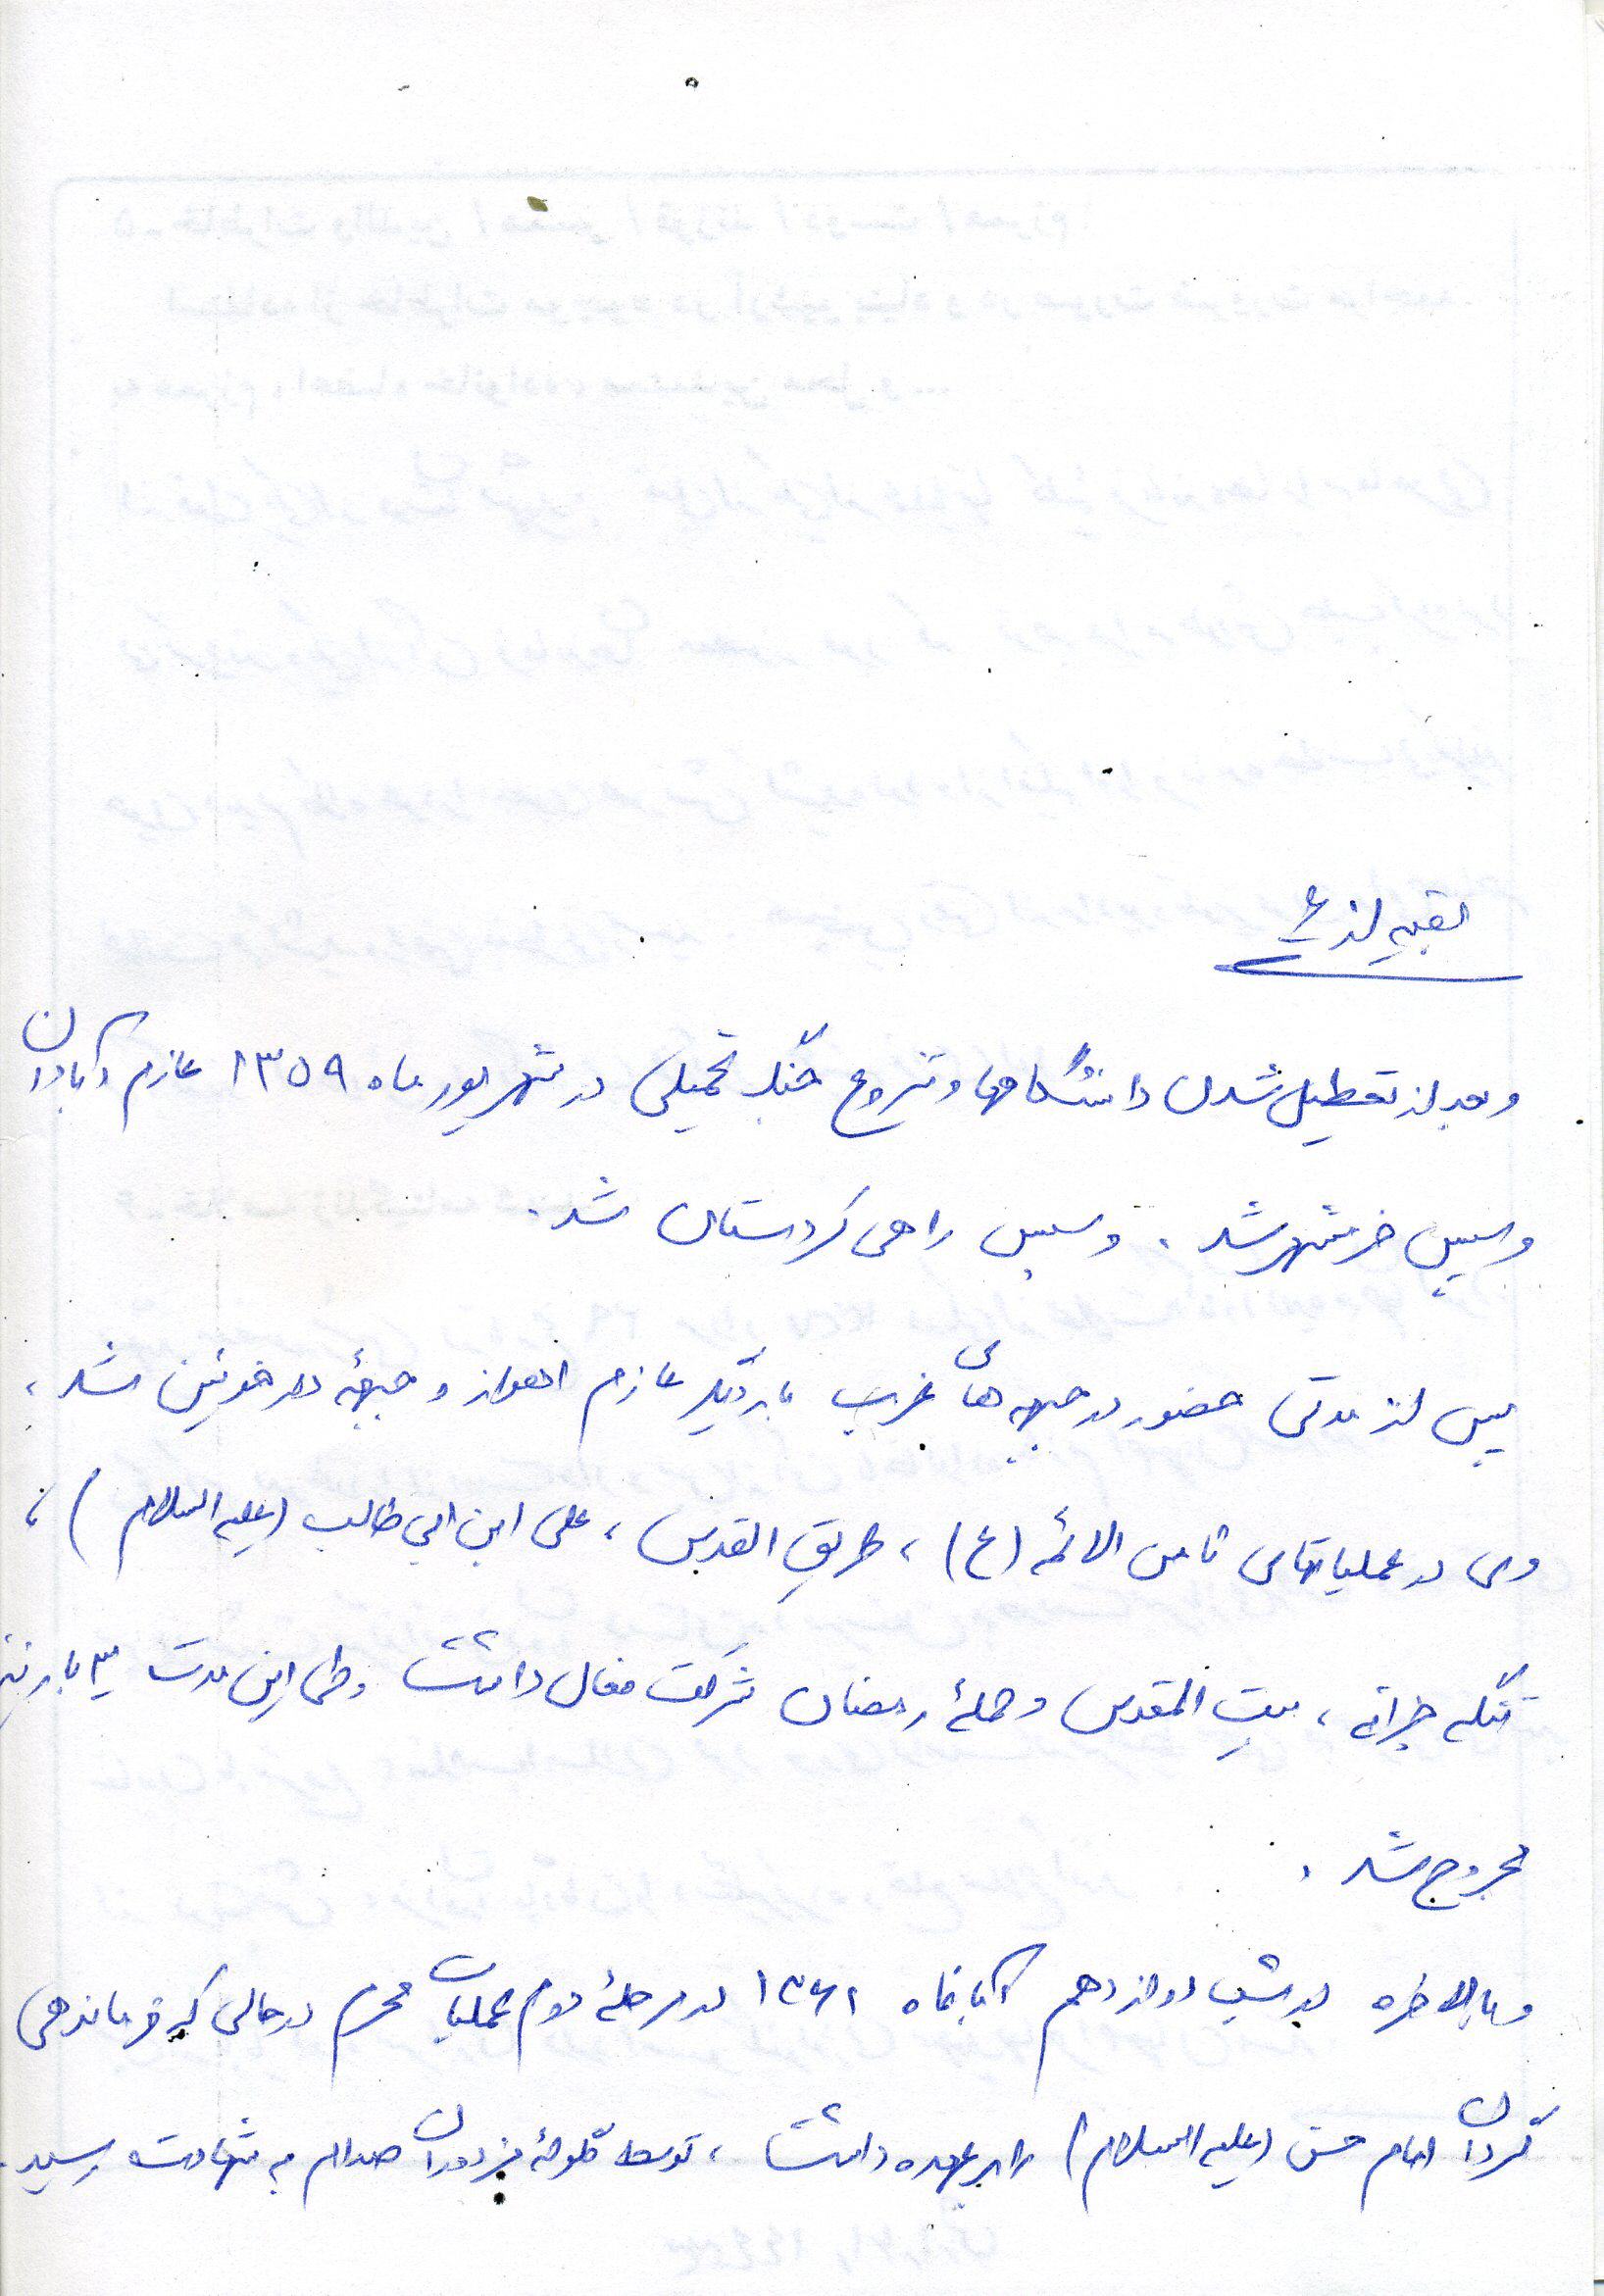 بقیه از ۴
و بعد از تعطیل شدن دانشگاهها و شروع جنگ تحمیلی در شهریور ماه ۱۳۵۹ عازم آبادان
و سپس خرمشهر شد . و سپس راهی کردستان شد .
پس از مدتی حضور در جبهه های غرب بار دیگر عازم اهواز و جبههٔ دارخوئین شد ،
وی در عملیاتهای ثامن الائمه (ع) ، طریق القدس ، علی ابن ابی طالب (علیه السلام) ،
تنگه چزابه ، بیت المقدس و حملهٔ رمضان شرکت فعال داشت و طی این مدت ۳ بار نیز
مجروح شد .
و بالاخره در شب دوازدهم آبانماه ۱۳۶۱ در مرحلهٔ دوم عملیات محرم در حالی که فرماندهی
گردان امام حسن (علیه السلام) را بر عهده داشت ، توسط گلولهٔ مزدوران صدام به شهادت رسید .